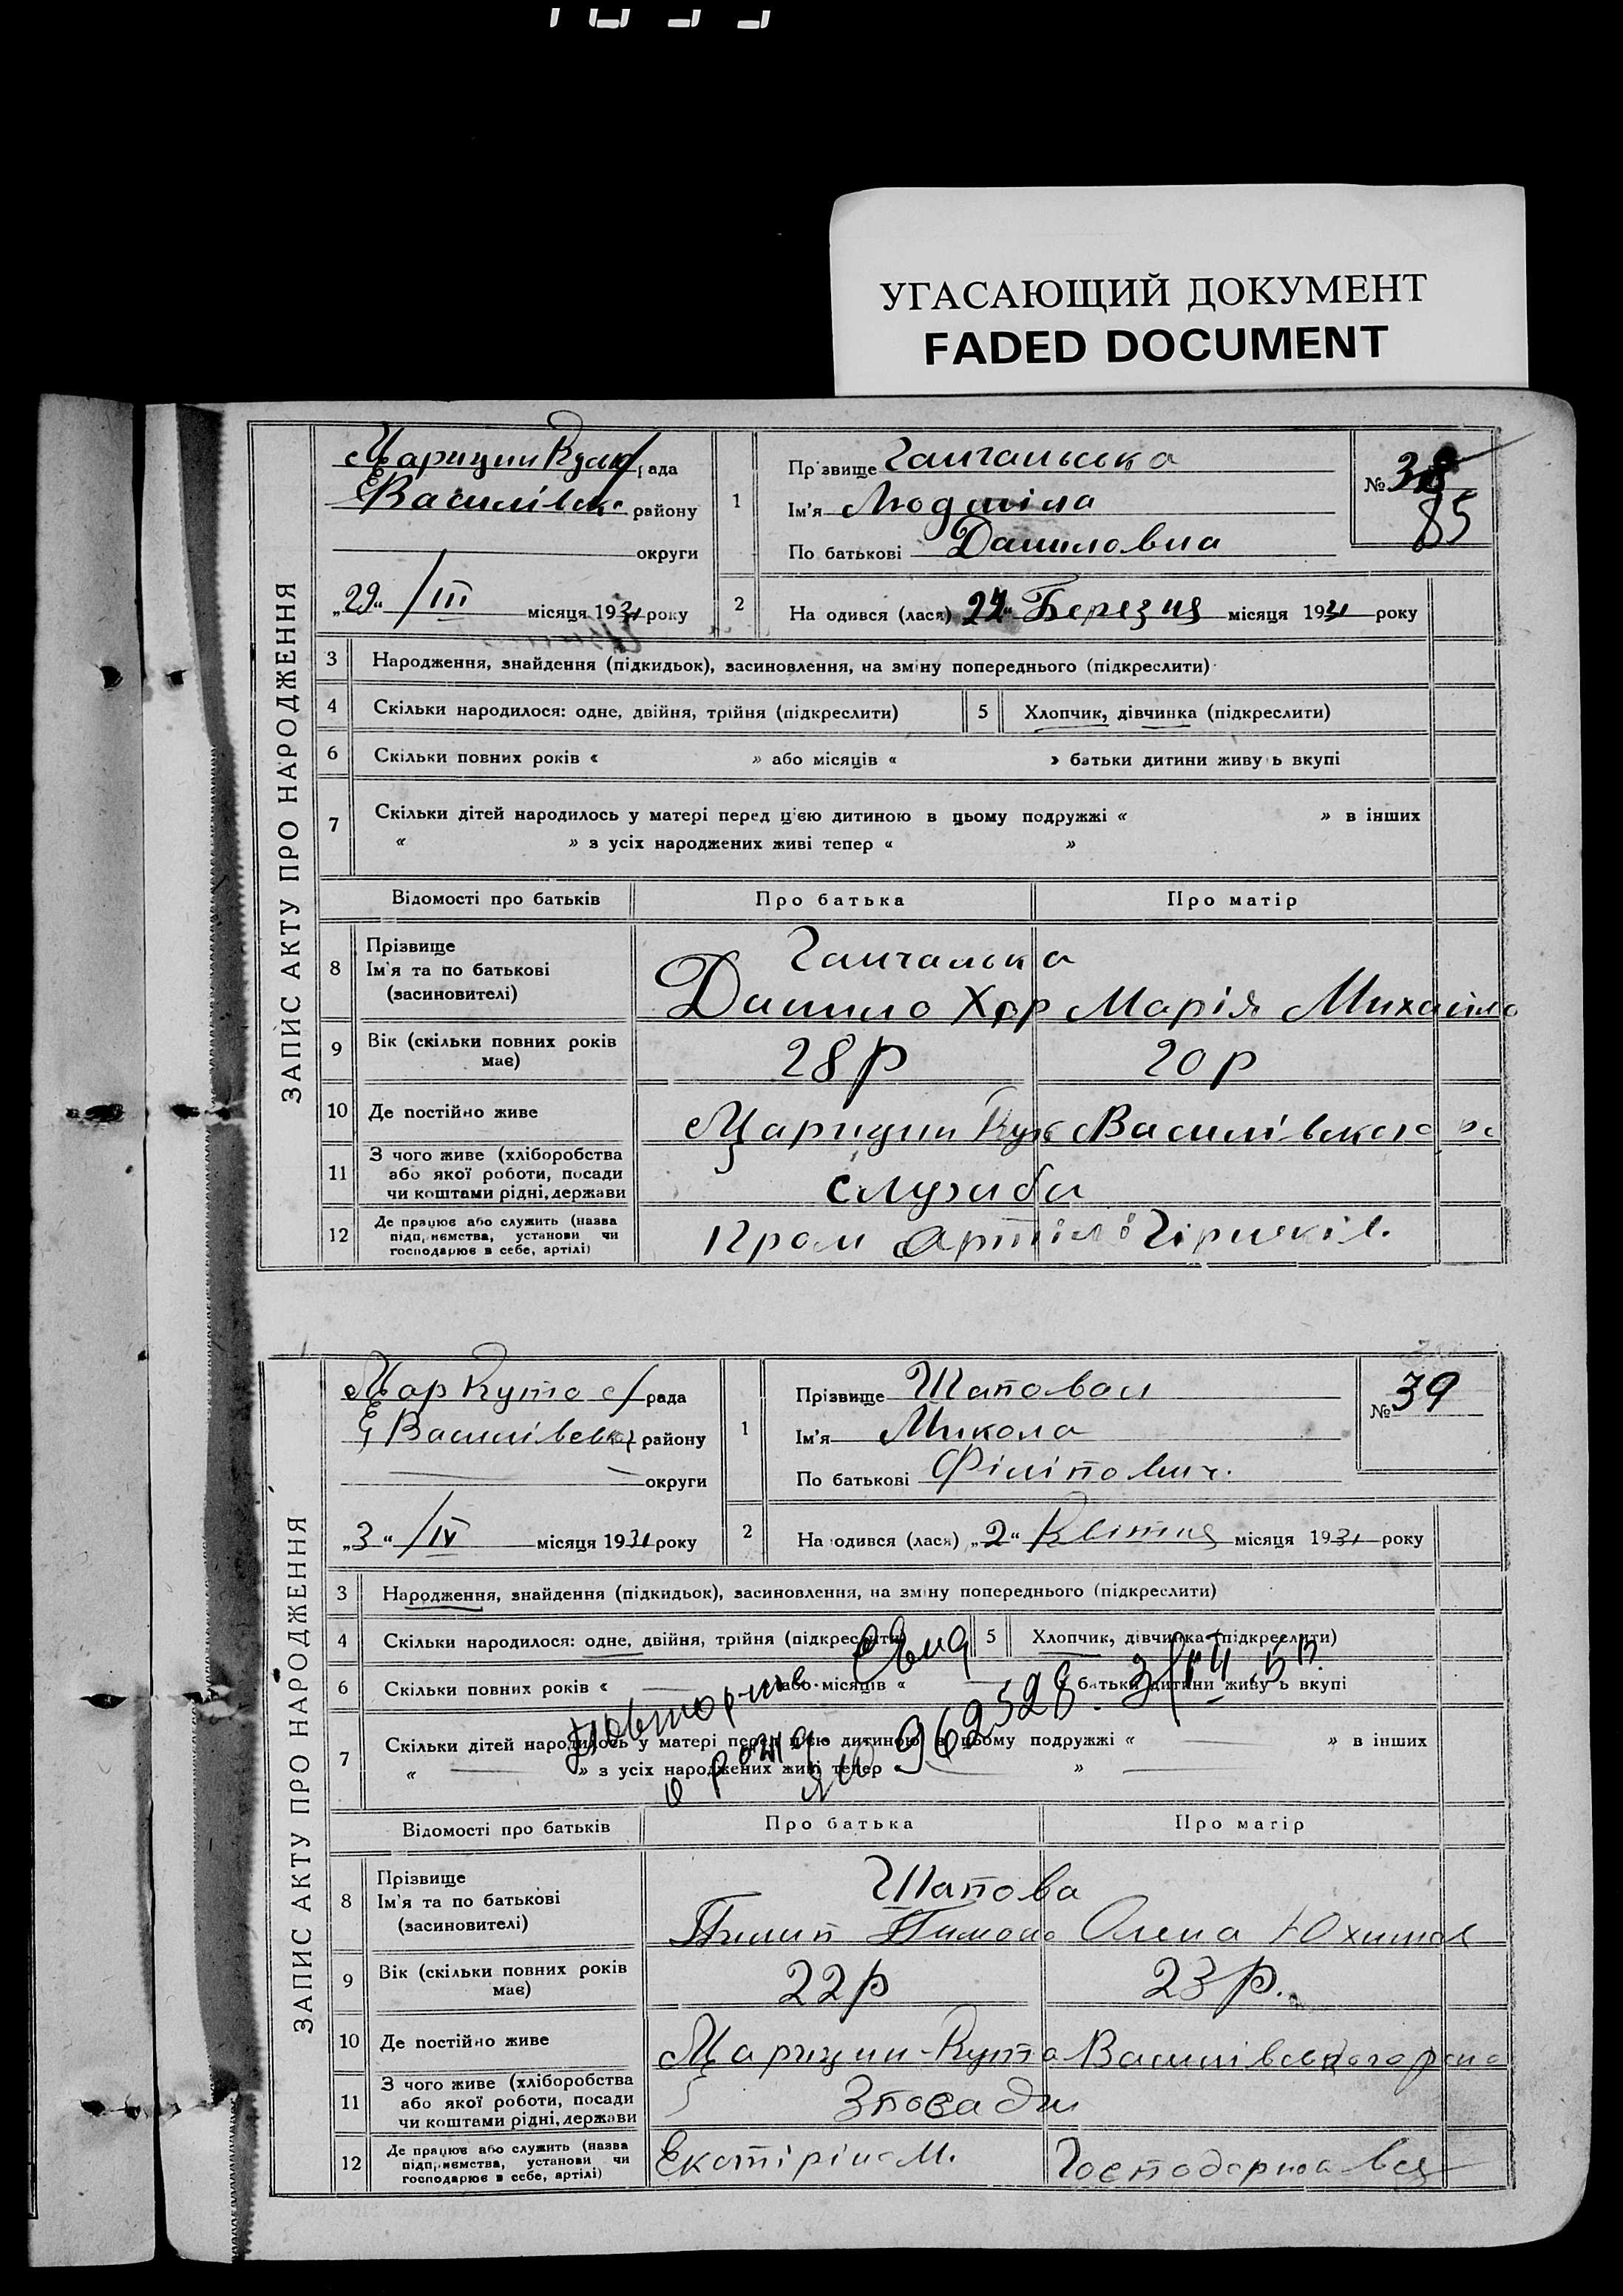 УГАСАЮЩИЙ ДОКУМЕНТ
FADED DOCUMENT
ЗАПИС АКТУ ПРО НАРОДЖЕННЯ
Царицин Кут рада
Василівськ району
округи
„29“ / III місяця 1931 року
1
Прізвище
Ім'я Людміла
По батькові Даниловна
№ 38
85
2
На одився (лася) „24“ Березня місяця 1931 року
3 Народження, знайдення (підкидьок), засиновлення, на зміну попереднього (підкреслити)
4 Скільки народилося: одне, двійня, трійня (підкреслити)
5 Хлопчик, дівчинка (підкреслити)
6 Скільки повних років « » або місяців « » батьки дитини живу ь вкупі
7 Скільки дітей народилось у матері перед цією дитиною в цьому подружжі « » в інших
« » з усіх народжених живі тепер « »
Відомості про батьків Про батька Про матір
8 Прізвище
Ім'я та по батькові
(засиновителі)
Данило Хар Марія Михайло
9 Вік (скільки повних років має)
28 р 20 р
10 Де постійно живе
Царицин Кут Василівского
11 З чого живе (хліборобства або якої роботи, посади чи коштами рідні, держави
служба
12 Де працює або служить (назва підприємства, установи чи господарює в себе, артілі)
Пром артіль
ЗАПИС АКТУ ПРО НАРОДЖЕННЯ
Цар Кута с/рада
Василівськ району
округи
„3“ / IV місяця 1931 року
1
Прізвище Шаповал
Ім'я Микола
По батькові Філіпович.
№ 39
2
На одився (лася) „2“ Квітня місяця 1931 року
3 Народження, знайдення (підкидьок), засиновлення, на зміну попереднього (підкреслити)
4 Скільки народилося: одне, двійня, трійня (підкреслити)
5 Хлопчик, дівчинка (підкреслити)
6 Скільки повних років « або місяців « батьки дитини живу ь вкупі
7 Скільки дітей народилось у матері перед цією дитиною в цьому подружжі « » в інших
« » з усіх народжених живі тепер « »
Повторное
о рожд.
962528
Відомості про батьків Про батька Про матір
8 Прізвище
Ім'я та по батькові
(засиновителі)
Шапова
Пилип Тимоно Олена Юхимов
9 Вік (скільки повних років має)
22 р 23 р.
10 Де постійно живе
Царицин-Кута Василівського рано
11 З чого живе (хліборобства або якої роботи, посади чи коштами рідні, держави
З посади
12 Де працює або служить (назва підприємства, установи чи господарює в себе, артілі)